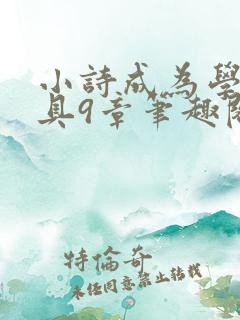 小詩成為學
具9章筆趣閣
特倫奇
未任同意禁止转载